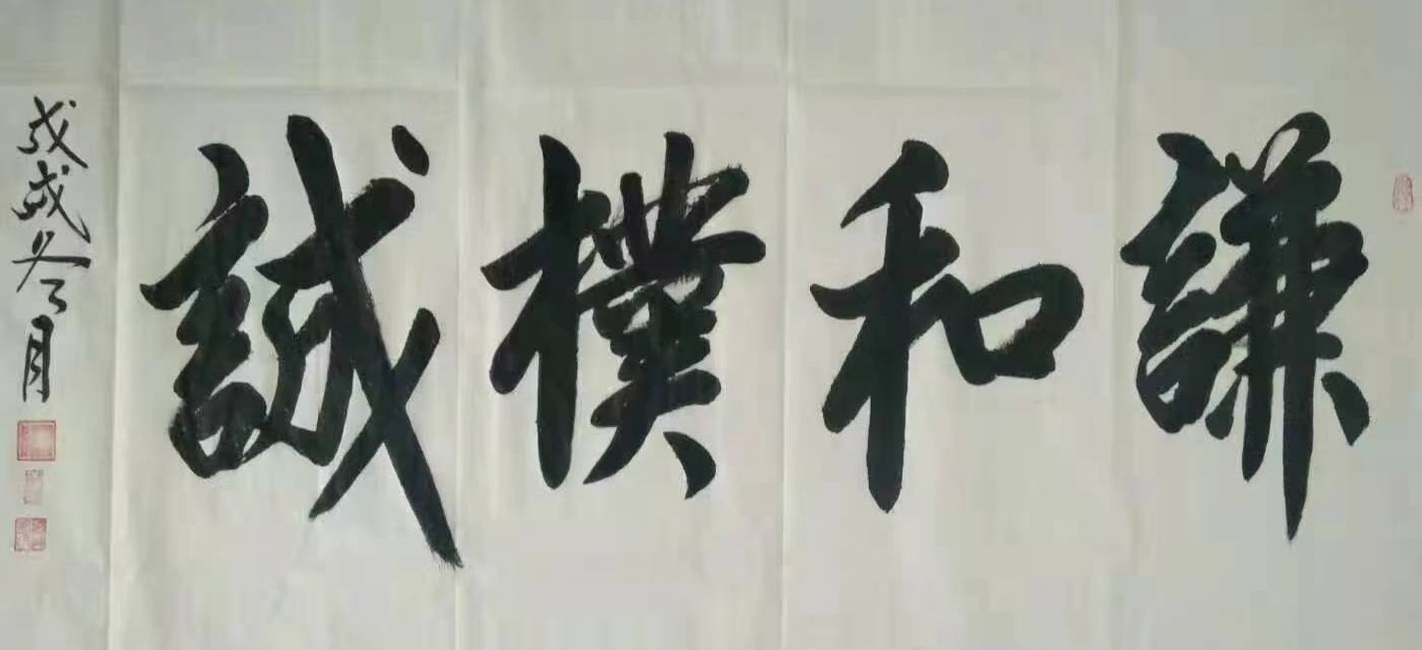 謙和樸誠
戊戌冬月